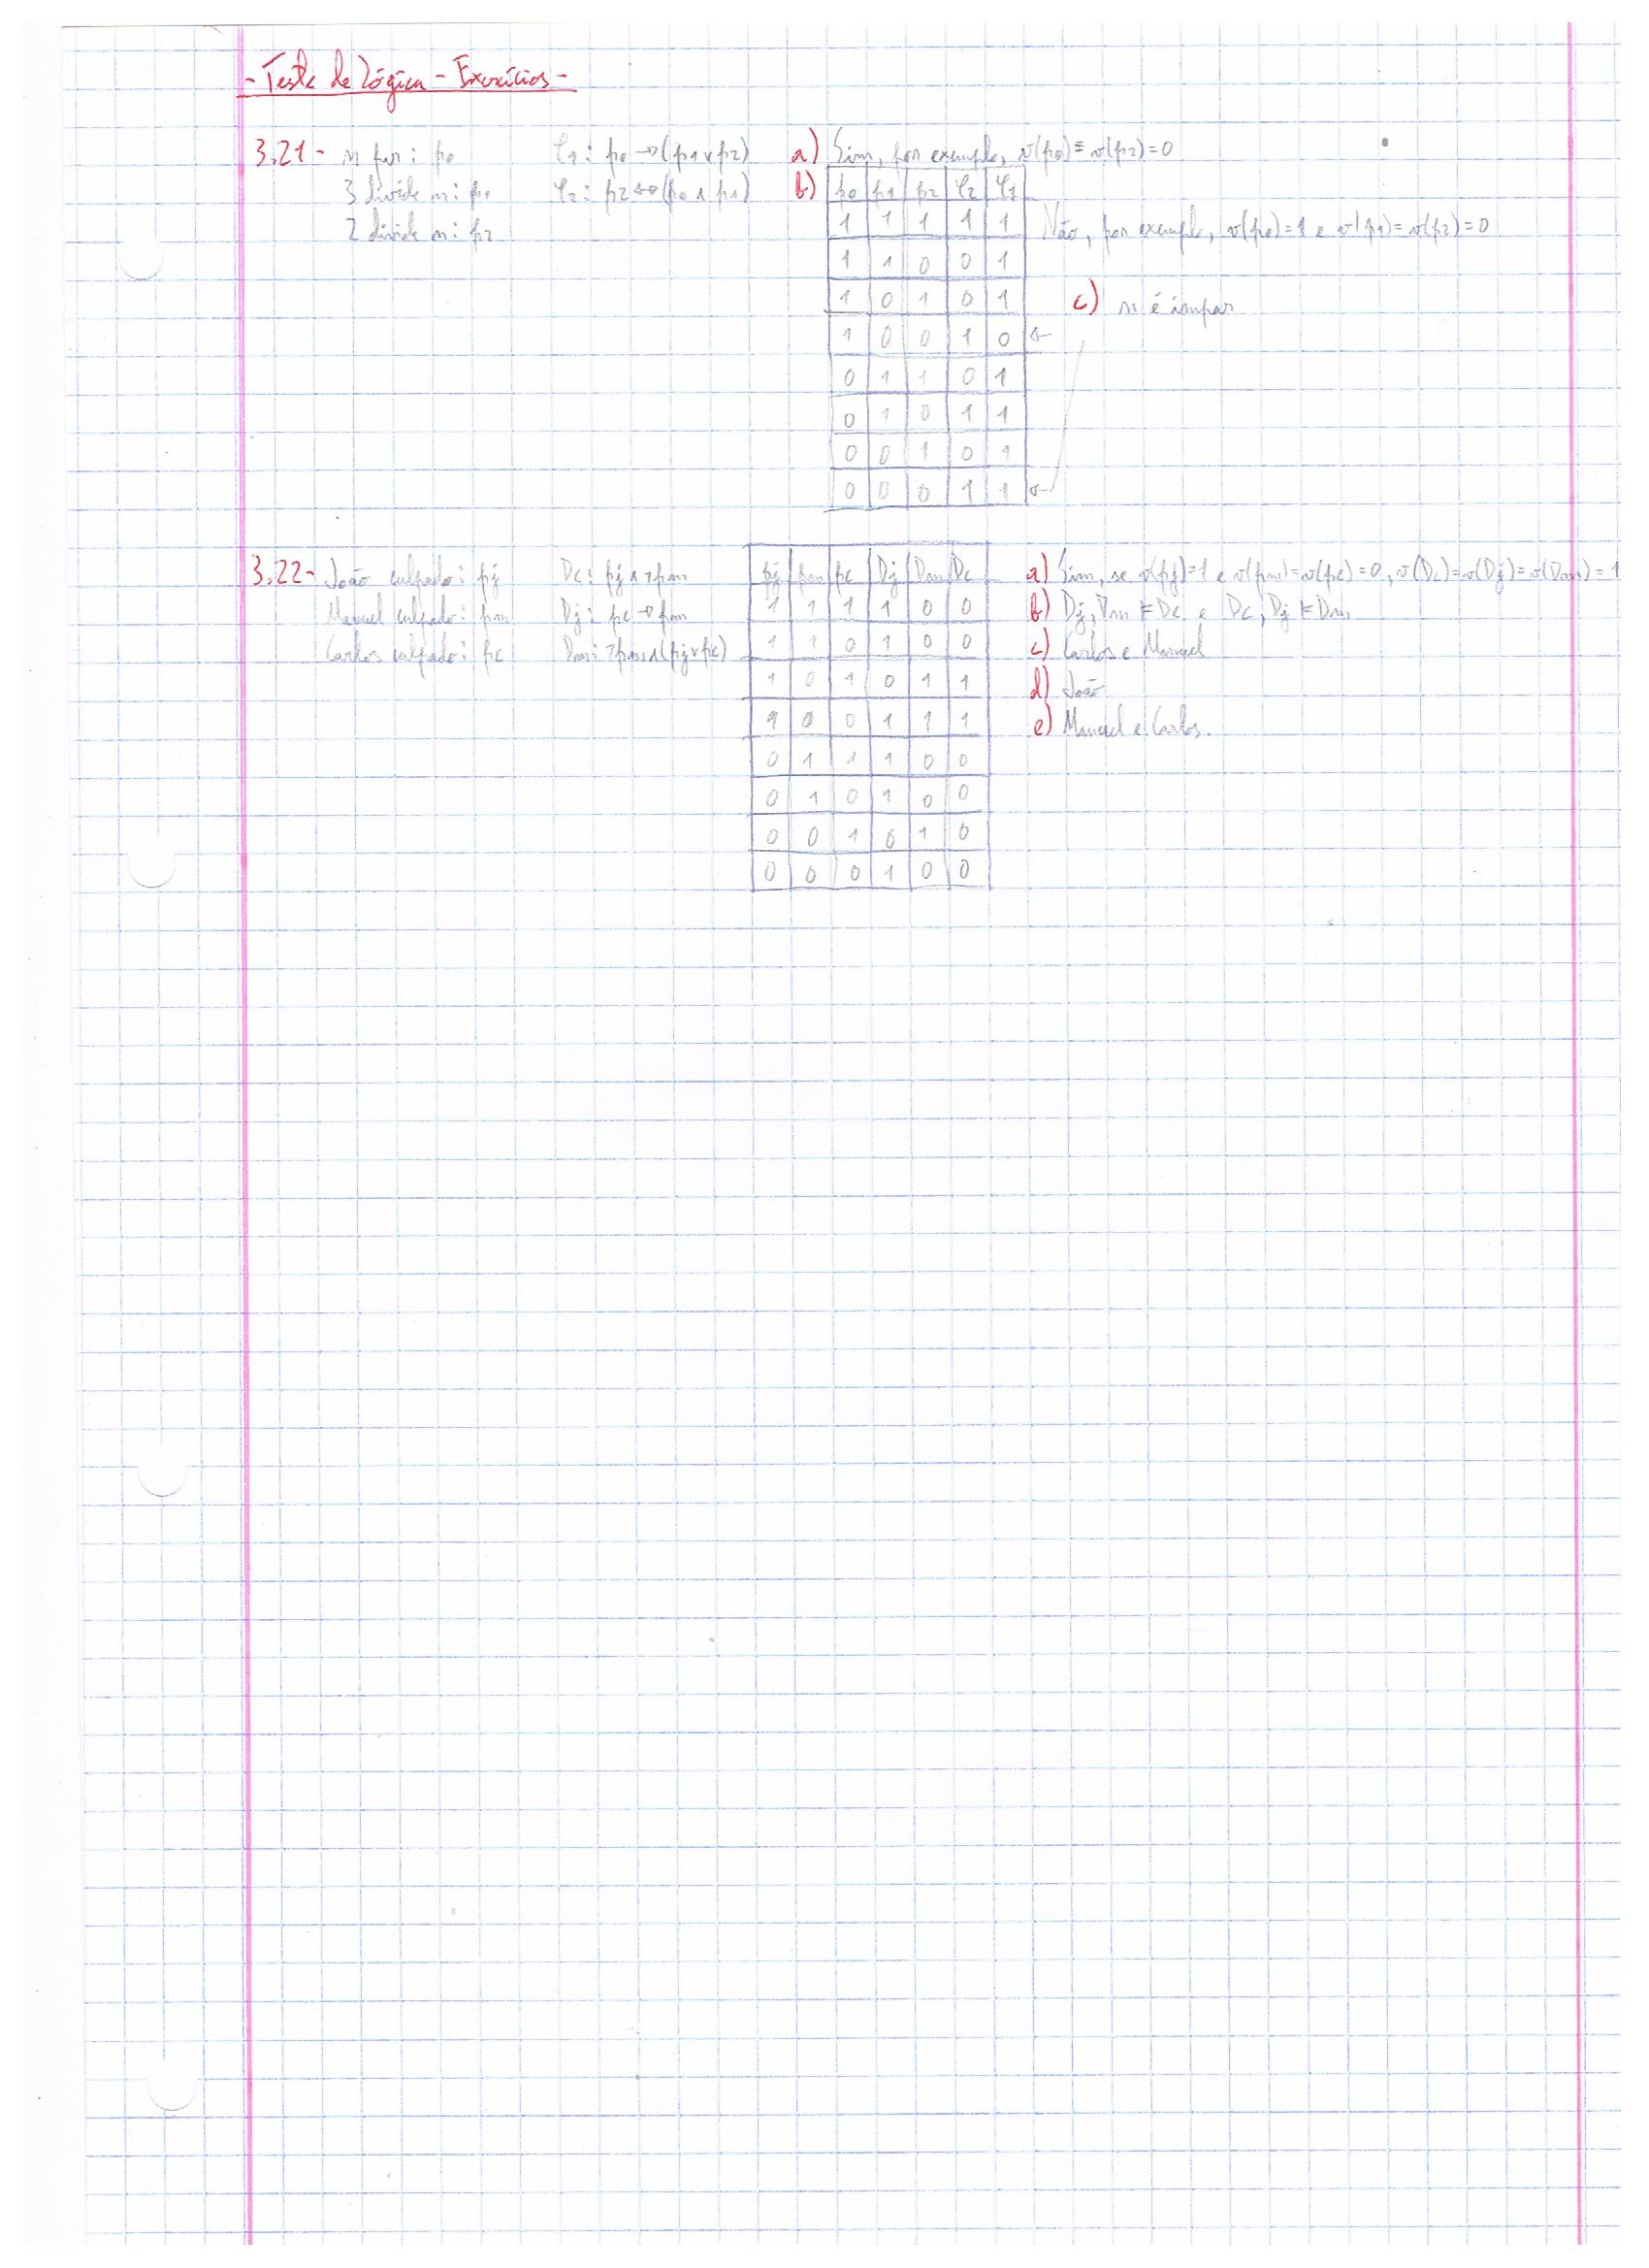 - Teste de Lógica - Exercícios -
3.21- n par: p0
3 divide n: p1
2 divide n: p2
φ1: p0 → (p1 ∨ p2)
φ2: p2 ↔ (p0 ∧ p1)
a) Sim, por exemplo, v(p0) = v(p2) = 0
b) p0 p1 p2 φ2 φ1
1 1 1 1 1
1 1 0 0 1
1 0 1 0 1
1 0 0 1 0 ←
0 1 1 0 1
0 1 0 1 1
0 0 1 0 1
0 0 0 1 1 ←
Não, por exemplo, v(p0)=1 e v(p1)=v(p2)=0
c) n é ímpar
3.22- João culpado: pj
Manuel culpado: pm
Carlos culpado: pc
Dc: pj ∧ ¬pm
Dj: pc → pm
Dm: ¬pm ∧ (pj ∨ pc)
pj pm pc Dj Dm Dc
1 1 1 1 0 0
1 1 0 1 0 0
1 0 1 0 1 1
1 0 0 1 1 1
0 1 1 1 0 0
0 1 0 1 0 0
0 0 1 0 1 0
0 0 0 1 0 0
a) Sim, se v(pj)=1 e v(pm)=v(pc)=0, v(Dc)=v(Dj)=v(Dm)=1
b) Dj, Dm ⊨ Dc e Dc, Dj ⊨ Dm
c) Carlos e Manuel
d) João
e) Manuel e Carlos.